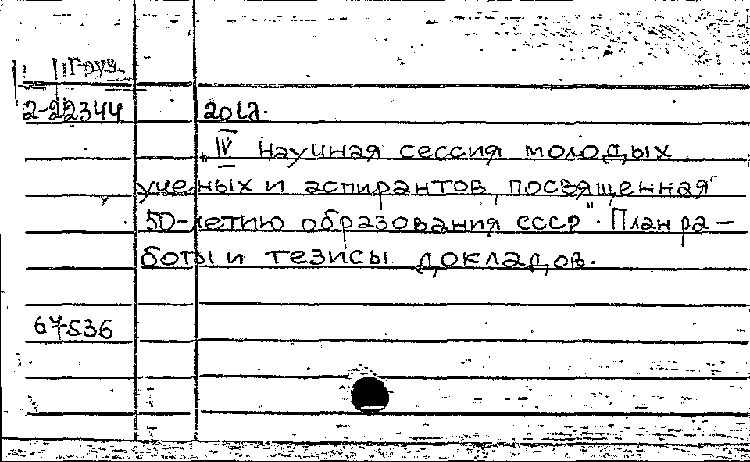 Груз.
2-22344
„IV научная сессия молодых
ученых и аспирантов, посвященная
50-летию образования СССР". План ра-
боты и тезисы докладов.
67-536